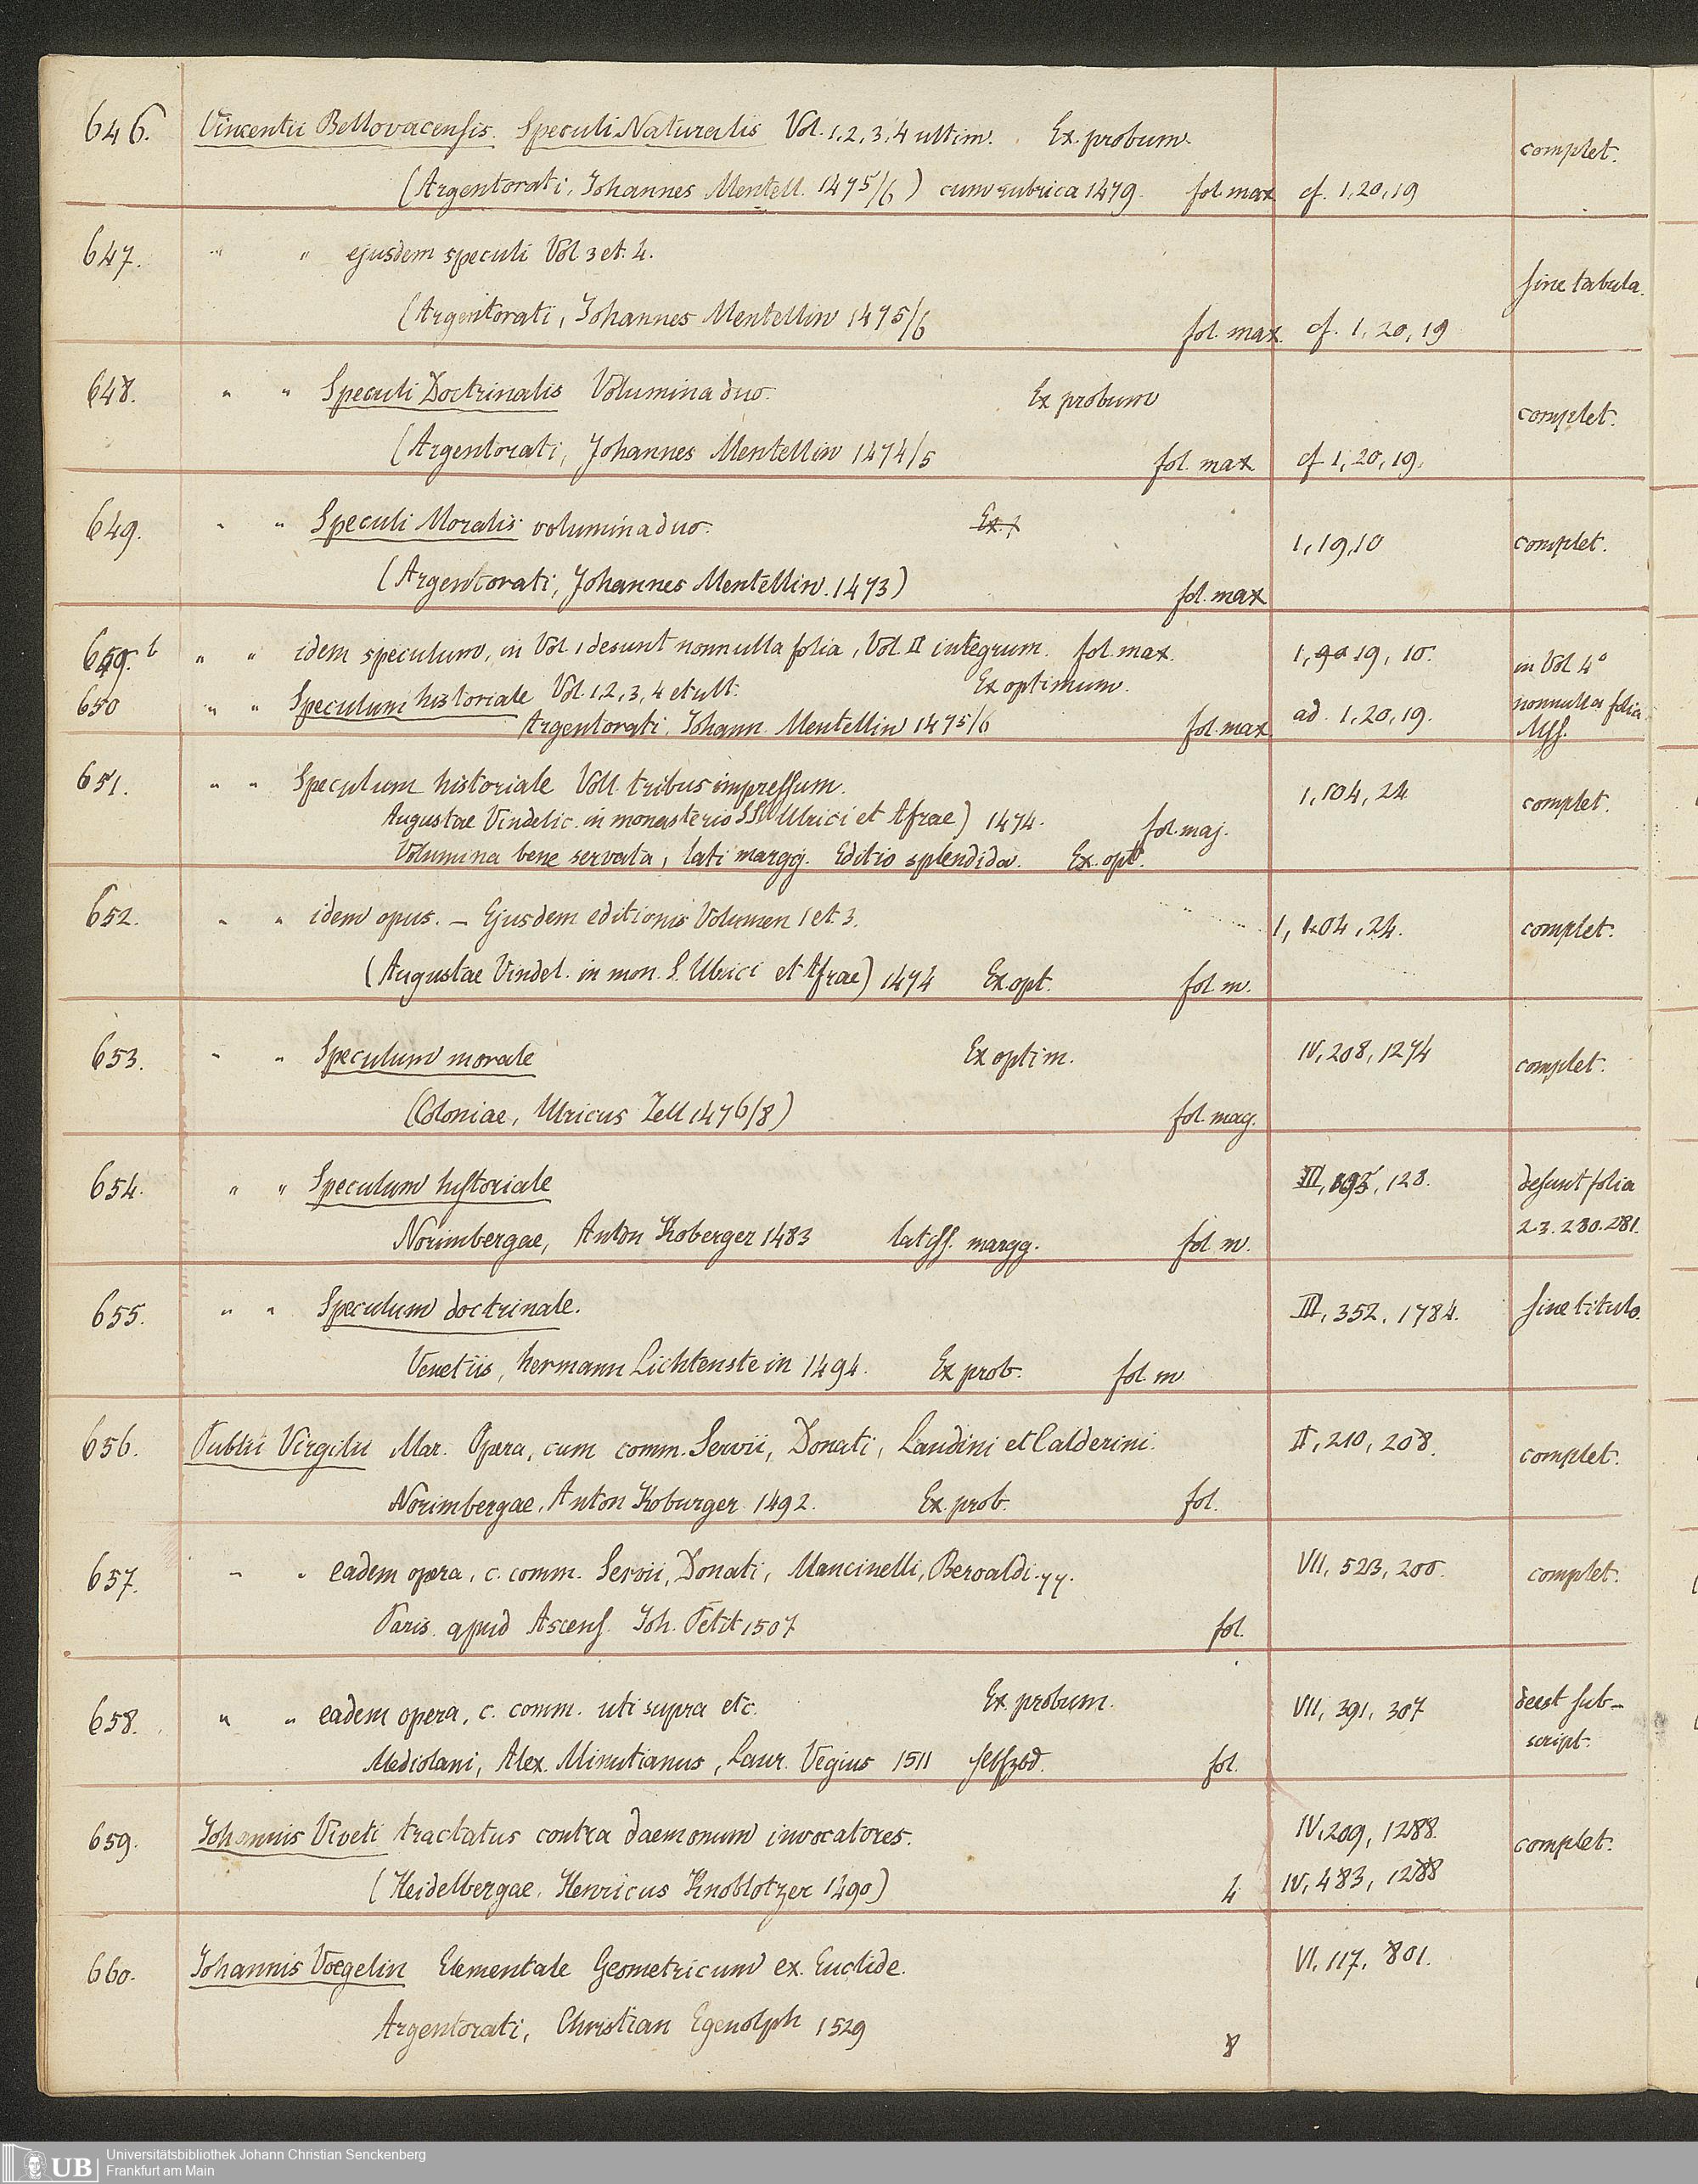 646. Vincentii Bellovacensis. Speculi Naturalis Vol. 1, 2, 3, 4 ultim. Ex. probum. complet.
(Argentorati, Johannes Mentell. 1475/6) cum rubrica 1479. fol. max cf. 1, 20, 19
647. " " ejusdem speculi Vol 3 et. 4. sine tabula.
(Argentorati, Johannes Mentellin 1475/6 fol. max. cf. 1, 20, 19
648. " " Speculi Doctrinalis Volumina duo. Ex probum complet.
(Argentorati, Johannes Mentellin 1474/5 fol. max cf 1, 20, 19.
649. " " Speculi Moralis volumina duo. Ex. 1, 19, 10 complet.
(Argentorati, Johannes Mentellin. 1473) fol. max
649. b " " idem speculum, in Vol 1 desunt nonnulla folia, Vol II integrum. fol. max. 1, 19, 10. in Vol 4°
650 " " Speculum historiale Vol. 1, 2, 3, 4 et ult. Ex optimum. ad. 1, 20, 19. nonnulla folia
Argentorati. Johann Mentellin 1475/6 fol. max Mss.
651. " " Speculum historiale Voll. tribus impressum. 1, 104, 24 complet.
Augustae Vindelic. in monasterio SS Ulrici et Afrae) 1474. fol. maj.
Volumina bene servata, lati margg. Editio splendida. Ex. opt.
652. " " idem opus. – Ejusdem editionis Volumen 1 et 3. 1, 104, 24. complet.
(Augustae Vindel. in mon. S. Ulrici et Afrae) 1474 Ex. opt. fol. m.
653. " " Speculum morale Ex optim. IV, 208, 1274 complet.
(Coloniae, Ulricus Zell 1476/8) fol. mag.
654. " " Speculum historiale III, 195, 128. desunt folia
Norimbergae, Anton Koberger 1483 latiss. margg. fol. m. 2.3. 280. 281.
655. " " Speculum doctrinale. III, 352, 1784. sine titulo.
Venetiis, hermann Lichtenstein 1494. Ex prob. fol. m
656. Publii Virgilii Mar. Opera, cum comm. Servii, Donati, Landini et Calderini. II, 210, 208. complet.
Norimbergae, Anton Koburger 1492. Ex. prob. fol.
657. " " eadem opera, c. comm. Servii, Donati, Mancinelli, Beroaldi. VII, 523, 200. complet.
Paris. apud Ascens. Joh. Petit 1507 fol.
658. " " eadem opera, c. comm. uti supra etc. Ex probum. VII, 391, 307 deest sub-
Mediolani, Alex. Minutianus, Laur. Vegius 1511 fol. script.
659. Johannis Viveti tractatus contra daemonum invocatores. IV, 209, 1288. complet.
(Heidelbergae. Henricus Knoblotzer 1490) 4 IV, 483, 1288
660. Johannis Voegelin Elementale Geometricum ex. Euclide. VI, 117, 801.
Argentorati, Christian Egenolph 1529 8
UB Universitätsbibliothek Johann Christian Senckenberg
Frankfurt am Main